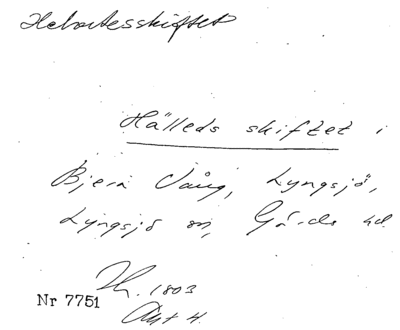 Helvetesskiftet
Hälleds skiftet i
Bjera Vång, Lyngsjö,
Lyngsjö sn, Gärds hd.
Th. 1803
Akt 4.
Nr 7751